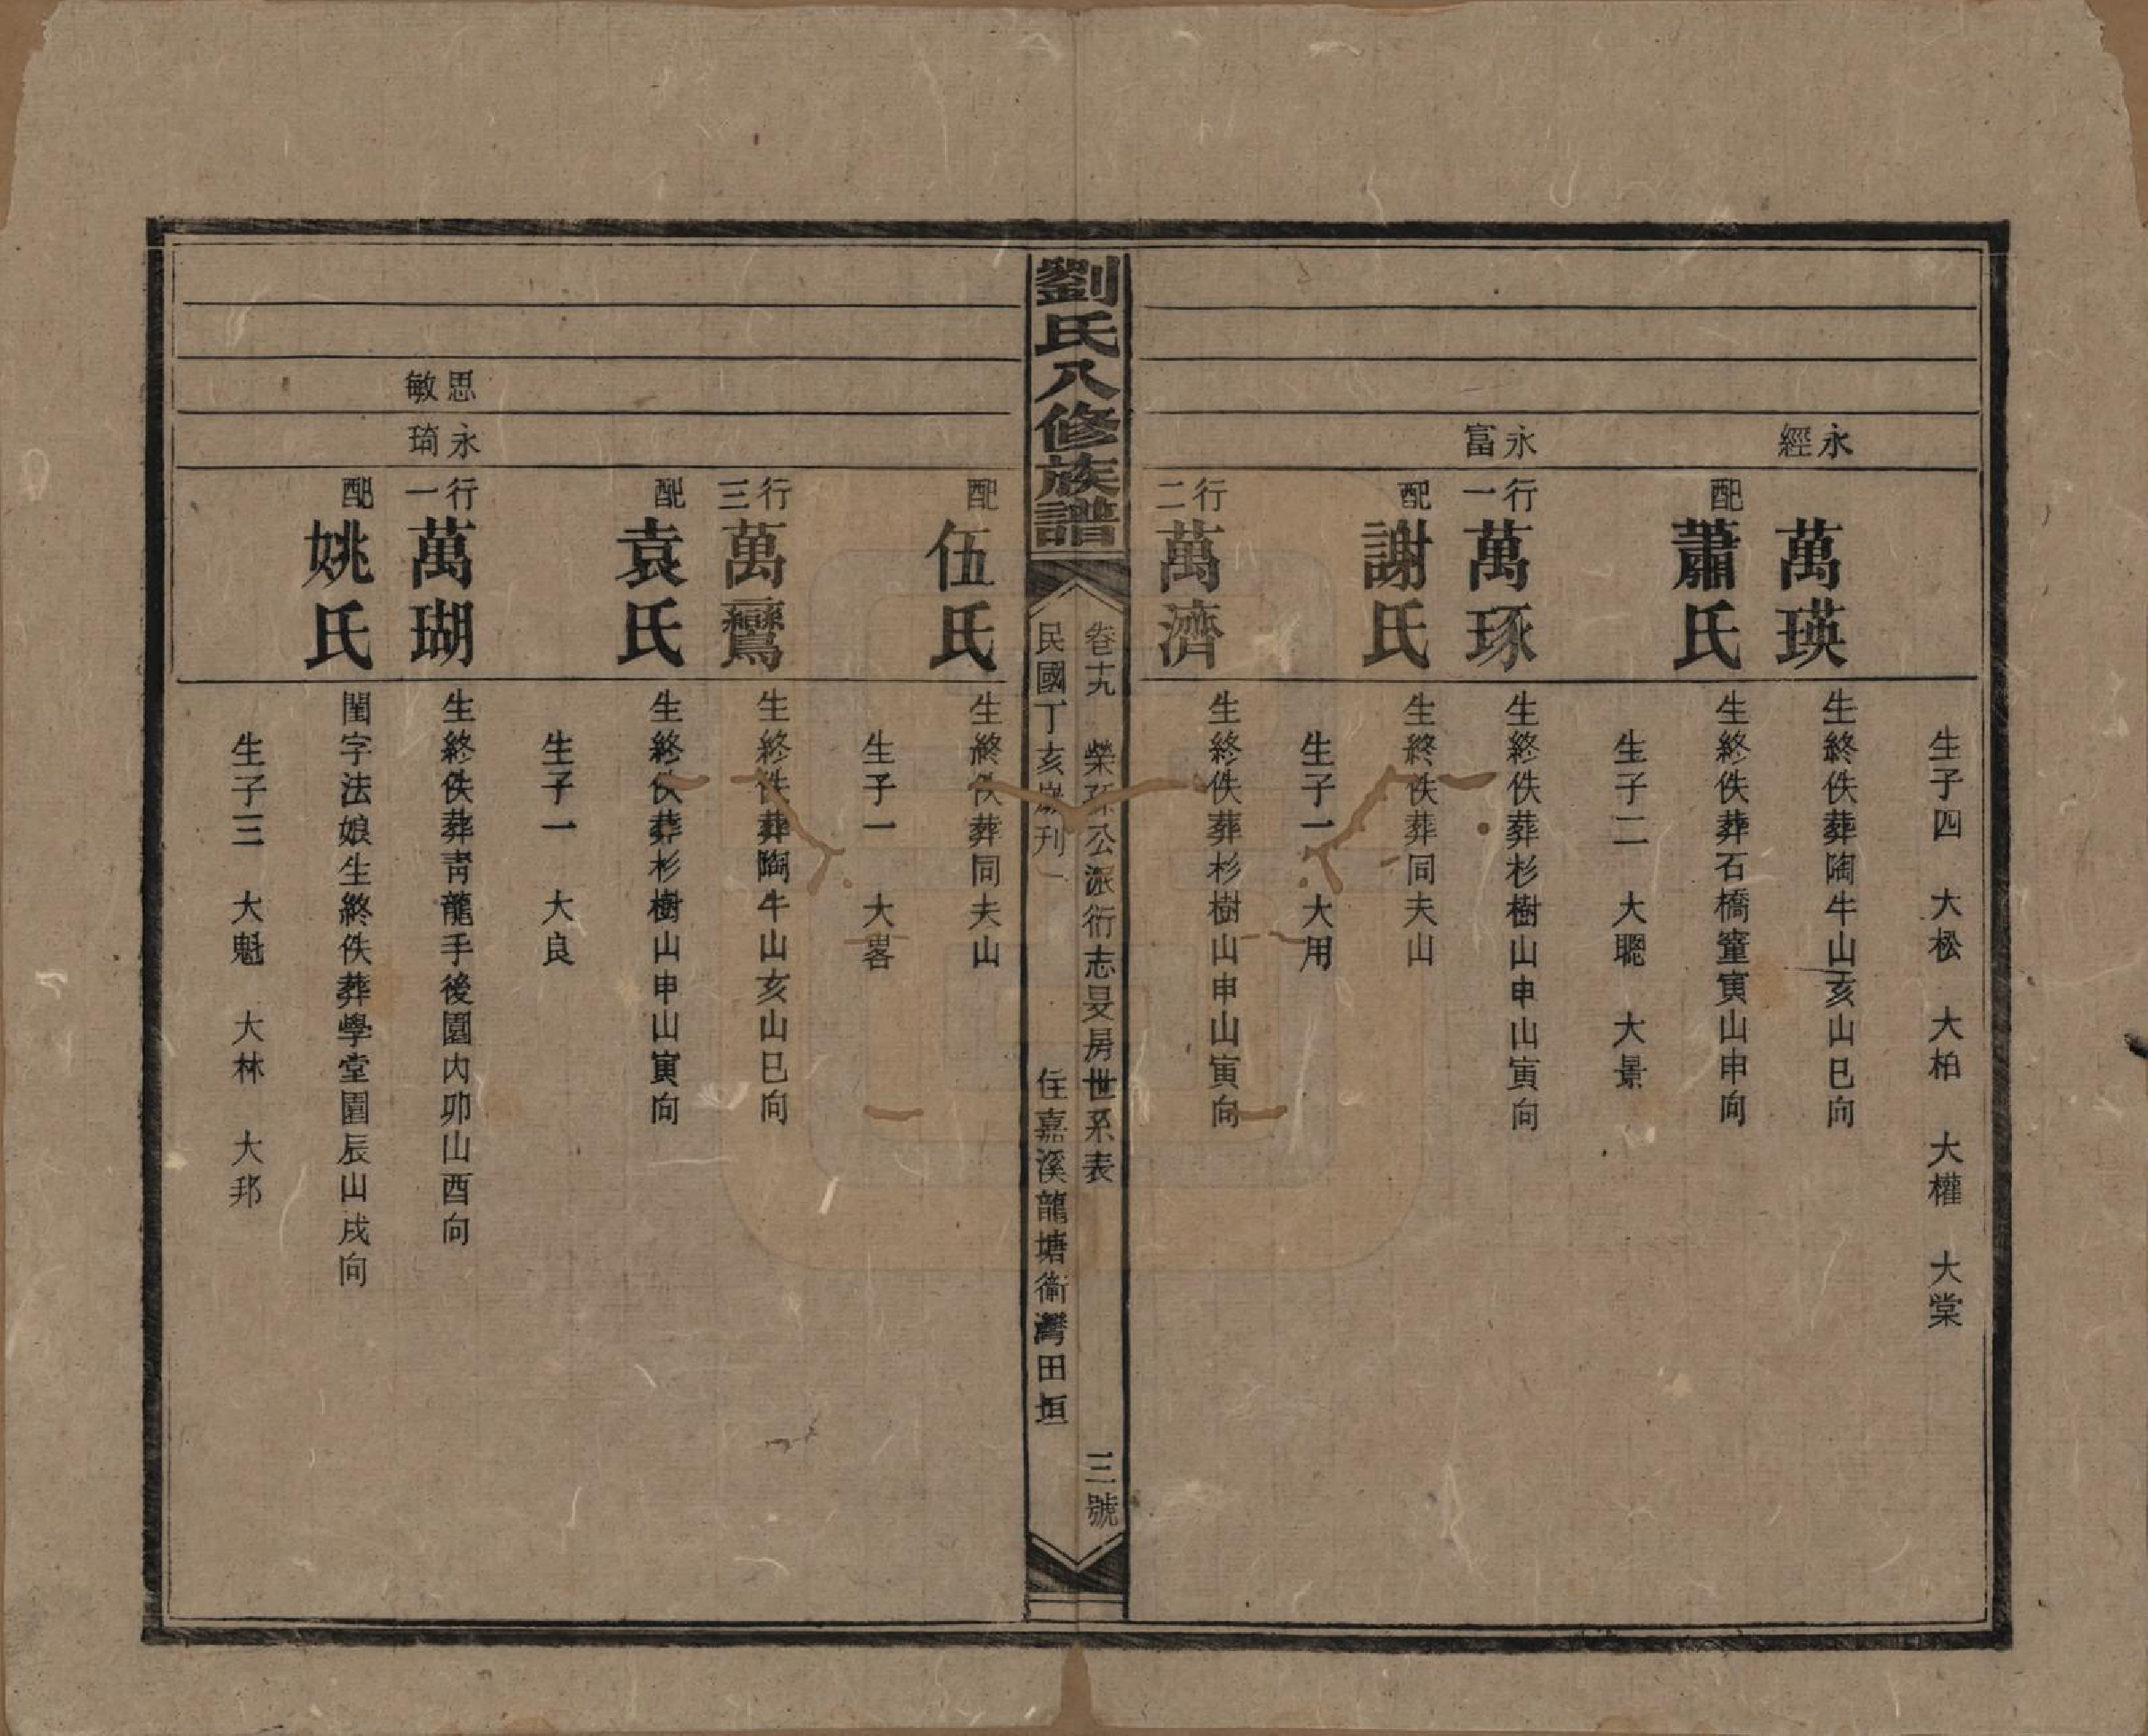 生子四　大松　大柏　大權　大棠
永經
萬瑛
生終佚葬陶牛山亥山巳向
配
蕭氏
生終佚葬石橋窰寅山申向
生子二　大聰　大景
永富
行一
萬琢
生終佚葬杉樹山申山寅向
配
謝氏
生終佚葬同夫山
生子一　大用
行二
萬濟
生終佚葬杉樹山申山寅向
劉氏八修族譜
卷十九　榮孫公派衍志旻房世系表　三號
民國丁亥歲刊　住嘉溪龍塘衝灣田垣
配
伍氏
生終佚葬同夫山
生子一　大畧
行三
萬鸞
生終佚葬陶牛山亥山巳向
配
袁氏
生終佚葬杉樹山申山寅向
生子一　大良
思敏
永琦
行一
萬瑚
生終佚葬青龍手後園內卯山酉向
配
姚氏
閨字法娘生終佚葬學堂園辰山戌向
生子三　大魁　大林　大邦